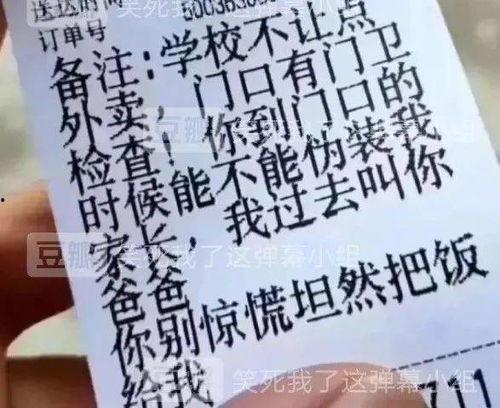 送达时间
订单号
备注:学校不让点
外卖,门口有门卫
检查,你到门口的
时候能不能伪装我
家长,我过去叫你
爸爸
你别惊慌坦然把饭
给我
豆瓣 笑死我了这弹幕小组
豆瓣 笑死我了这弹幕小组
豆瓣 笑死我了这弹幕小组